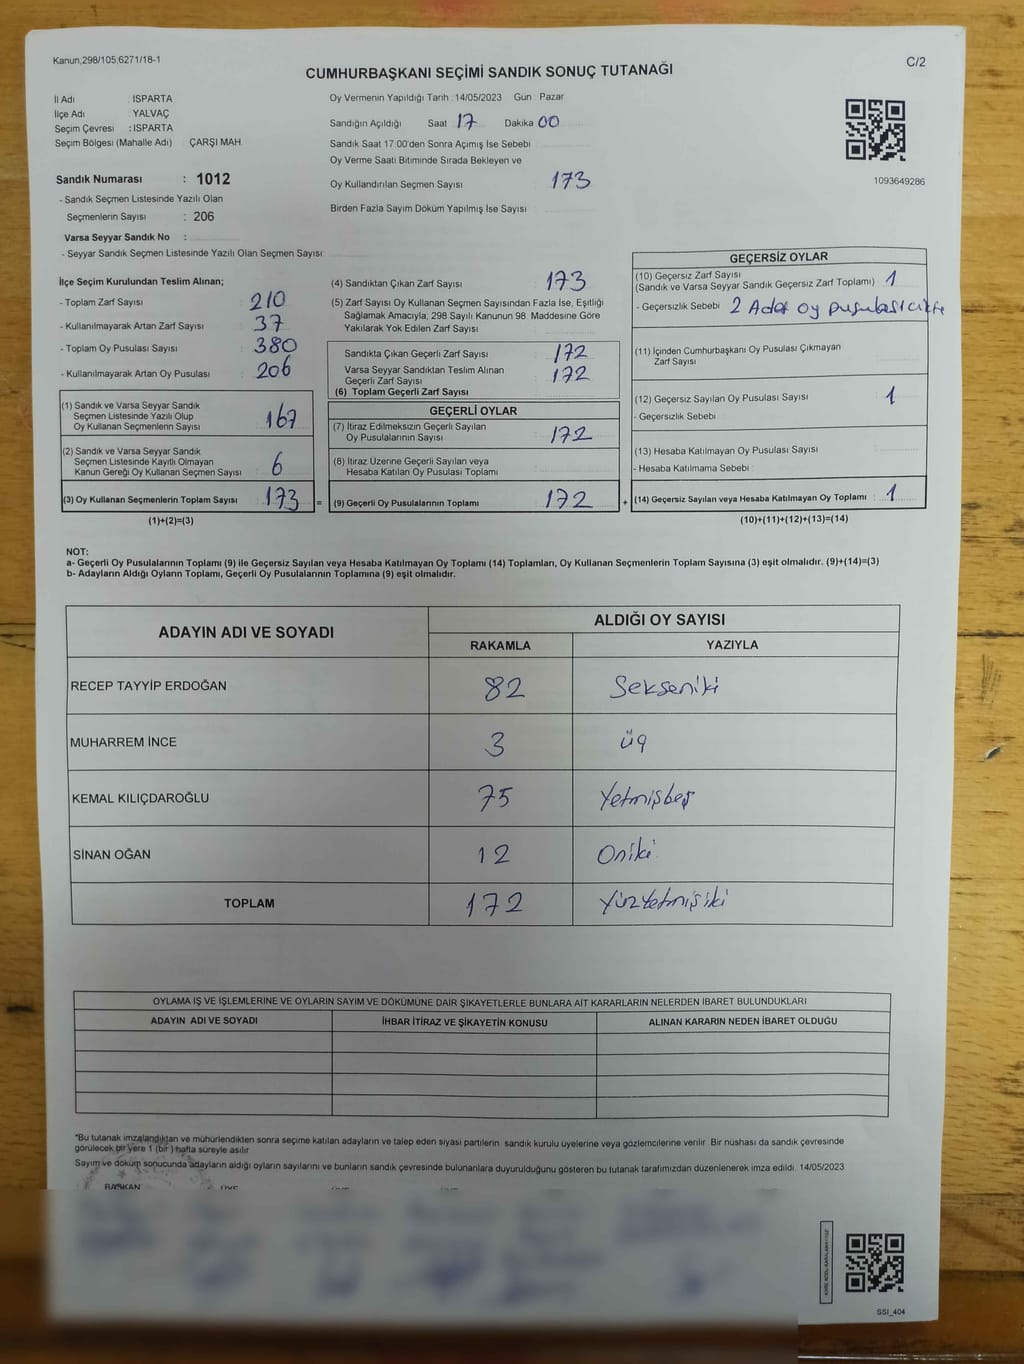 Kanun,298/105,6271/18-1
C/2
CUMHURBAŞKANI SEÇİMİ SANDIK SONUÇ TUTANAĞI
İl Adı : ISPARTA
İlçe Adı : YALVAÇ
Seçim Çevresi : ISPARTA
Seçim Bölgesi (Mahalle Adı) : ÇARŞI MAH.
Sandık Numarası : 1012
- Sandık Seçmen Listesinde Yazılı Olan
Seçmenlerin Sayısı : 206
Varsa Seyyar Sandık No :
- Seyyar Sandık Seçmen Listesinde Yazılı Olan Seçmen Sayısı
Oy Vermenin Yapıldığı Tarih : 14/05/2023 Gün : Pazar
Sandığın Açıldığı Saat 17 Dakika 00
Sandık Saat 17:00'den Sonra Açımış İse Sebebi
Oy Verme Saati Bitiminde Sırada Bekleyen ve
Oy Kullandırılan Seçmen Sayısı 173
Birden Fazla Sayım Döküm Yapılmış İse Sayısı
1093649286
İlçe Seçim Kurulundan Teslim Alınan;
- Toplam Zarf Sayısı : 210
- Kullanılmayarak Artan Zarf Sayısı : 37
- Toplam Oy Pusulası Sayısı : 380
- Kullanılmayarak Artan Oy Pusulası : 206
(1) Sandık ve Varsa Seyyar Sandık
Seçmen Listesinde Yazılı Olup
Oy Kullanan Seçmenlerin Sayısı : 167
(2) Sandık ve Varsa Seyyar Sandık
Seçmen Listesinde Kayıtlı Olmayan
Kanun Gereği Oy Kullanan Seçmen Sayısı : 6
(3) Oy Kullanan Seçmenlerin Toplam Sayısı : 173 =
(1)+(2)=(3)
(4) Sandıktan Çıkan Zarf Sayısı : 173
(5) Zarf Sayısı Oy Kullanan Seçmen Sayısından Fazla İse, Eşitliği
Sağlamak Amacıyla, 298 Sayılı Kanunun 98. Maddesine Göre
Yakılarak Yok Edilen Zarf Sayısı
Sandıkta Çıkan Geçerli Zarf Sayısı : 172
Varsa Seyyar Sandıktan Teslim Alınan
Geçerli Zarf Sayısı : 172
(6) Toplam Geçerli Zarf Sayısı
GEÇERLİ OYLAR
(7) İtiraz Edilmeksizin Geçerli Sayılan
Oy Pusulalarının Sayısı : 172
(8) İtiraz Üzerine Geçerli Sayılan veya
Hesaba Katılan Oy Pusulası Toplamı
(9) Geçerli Oy Pusulalarının Toplamı : 172 +
GEÇERSİZ OYLAR
(10) Geçersiz Zarf Sayısı
(Sandık ve Varsa Seyyar Sandık Geçersiz Zarf Toplamı) : 1
- Geçersizlik Sebebi : 2 Adet oy pusulası cikte
(11) İçinden Cumhurbaşkanı Oy Pusulası Çıkmayan
Zarf Sayısı
(12) Geçersiz Sayılan Oy Pusulası Sayısı : 1
- Geçersizlik Sebebi
(13) Hesaba Katılmayan Oy Pusulası Sayısı
- Hesaba Katılmama Sebebi
(14) Geçersiz Sayılan veya Hesaba Katılmayan Oy Toplamı : 1
(10)+(11)+(12)+(13)=(14)
NOT:
a- Geçerli Oy Pusulalarının Toplamı (9) ile Geçersiz Sayılan veya Hesaba Katılmayan Oy Toplamı (14) Toplamları, Oy Kullanan Seçmenlerin Toplam Sayısına (3) eşit olmalıdır. (9)+(14)=(3)
b- Adayların Aldığı Oyların Toplamı, Geçerli Oy Pusulalarının Toplamına (9) eşit olmalıdır.
ADAYIN ADI VE SOYADI ALDIĞI OY SAYISI
RAKAMLA YAZIYLA
RECEP TAYYİP ERDOĞAN 82 Sekseniki
MUHARREM İNCE 3 üç
KEMAL KILIÇDAROĞLU 75 Yetmişbeş
SİNAN OĞAN 12 Oniki
TOPLAM 172 Yüzyetmişiki
OYLAMA İŞ VE İŞLEMLERİNE VE OYLARIN SAYIM VE DÖKÜMÜNE DAİR ŞİKAYETLERLE BUNLARA AİT KARARLARIN NELERDEN İBARET BULUNDUKLARI
ADAYIN ADI VE SOYADI İHBAR İTİRAZ VE ŞİKAYETİN KONUSU ALINAN KARARIN NEDEN İBARET OLDUĞU
*Bu tutanak imzalandıktan ve mühürlendikten sonra seçime katılan adayların ve talep eden siyasi partilerin sandık kurulu üyelerine veya gözlemcilerine verilir. Bir nüshası da sandık çevresinde
görülecek bir yere 1 (bir) hafta süreyle asılır
Sayım ve döküm sonucunda adayların aldığı oyların sayılarını ve bunların sandık çevresinde bulunanlara duyurulduğunu gösteren bu tutanak tarafımızdan düzenlenerek imza edildi. 14/05/2023
BAŞKAN ÜYE
SSI_404